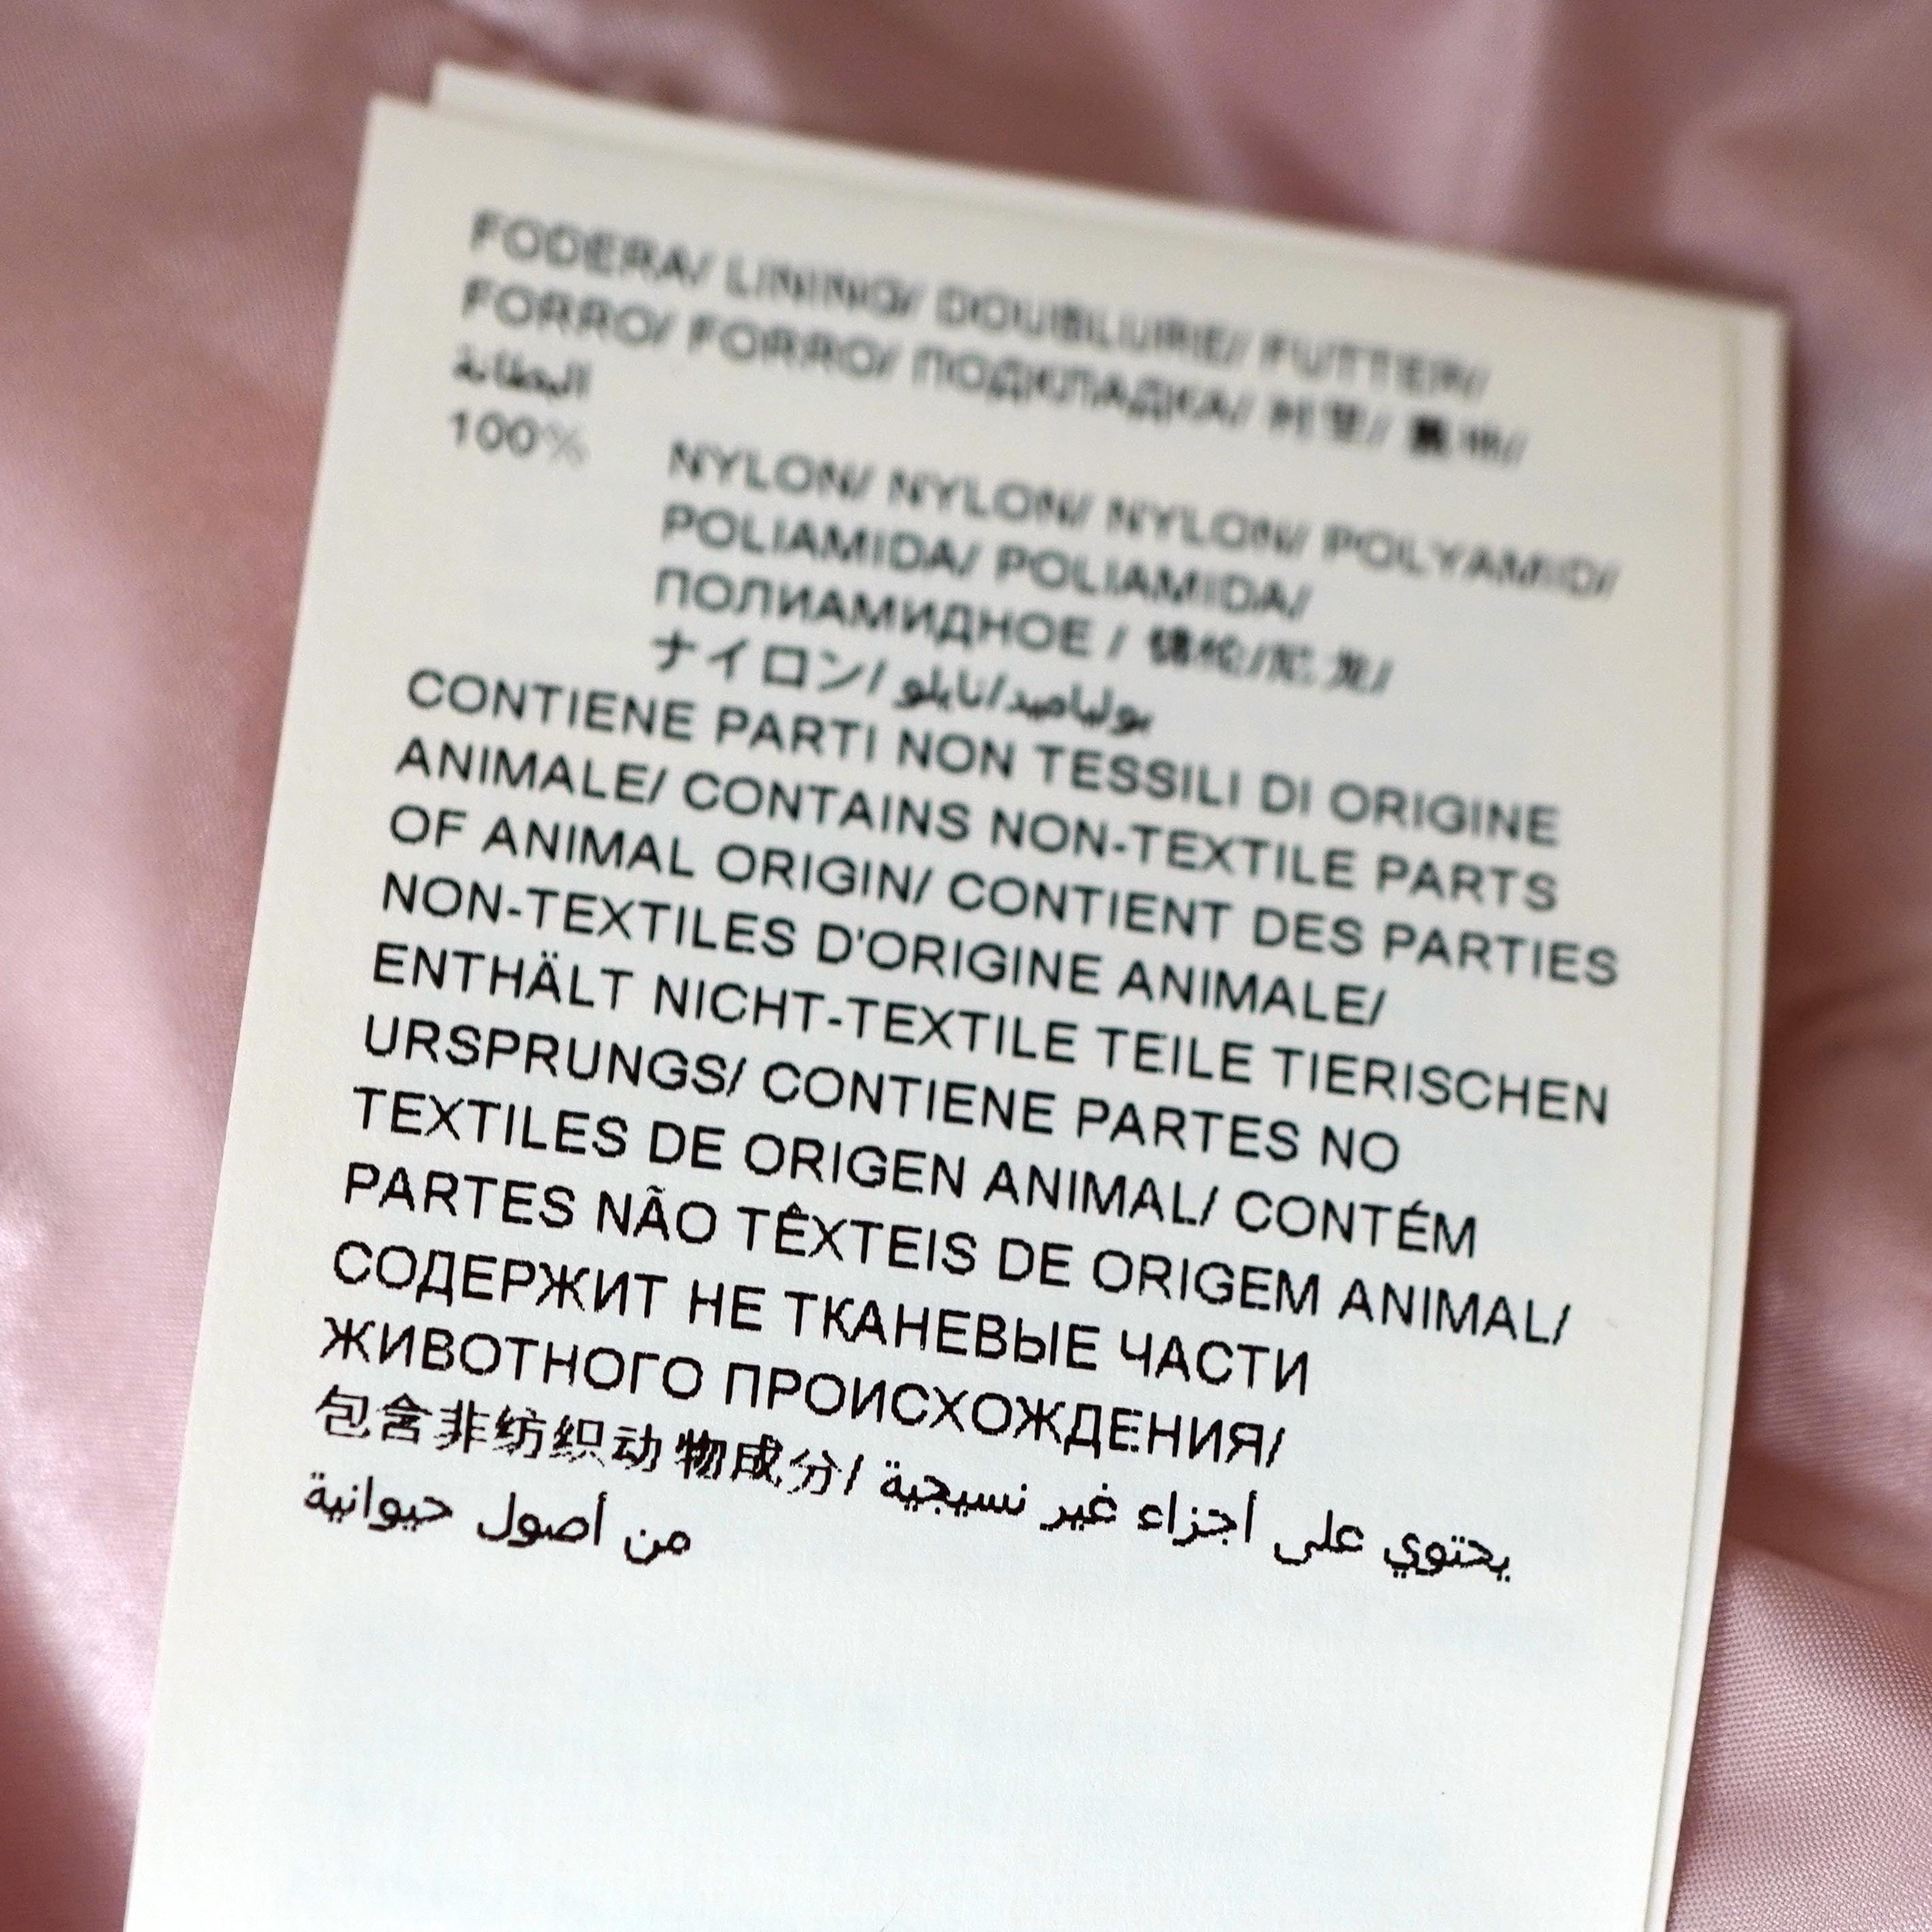 FODERA/ LINING/ DOUBLURE/ FUTTER/
FORRO/ FORRO/ ПОДКЛАДКА/ 衬里/ 裏地/
البطانة
100%
NYLON/ NYLON/ NYLON/ POLYAMID/
POLIAMIDA/ POLIAMIDA/
ПОЛИАМИДНОЕ / 锦纶/尼龙/
ナイロン/ بولياميد/نايلو
CONTIENE PARTI NON TESSILI DI ORIGINE
ANIMALE/ CONTAINS NON-TEXTILE PARTS
OF ANIMAL ORIGIN/ CONTIENT DES PARTIES
NON-TEXTILES D'ORIGINE ANIMALE/
ENTHÄLT NICHT-TEXTILE TEILE TIERISCHEN
URSPRUNGS/ CONTIENE PARTES NO
TEXTILES DE ORIGEN ANIMAL/ CONTÉM
PARTES NÃO TÊXTEIS DE ORIGEM ANIMAL/
СОДЕРЖИТ НЕ ТКАНЕВЫЕ ЧАСТИ
ЖИВОТНОГО ПРОИСХОЖДЕНИЯ/
包含非纺织动物成分/ يحتوي على أجزاء غير نسيجية
من أصول حيوانية